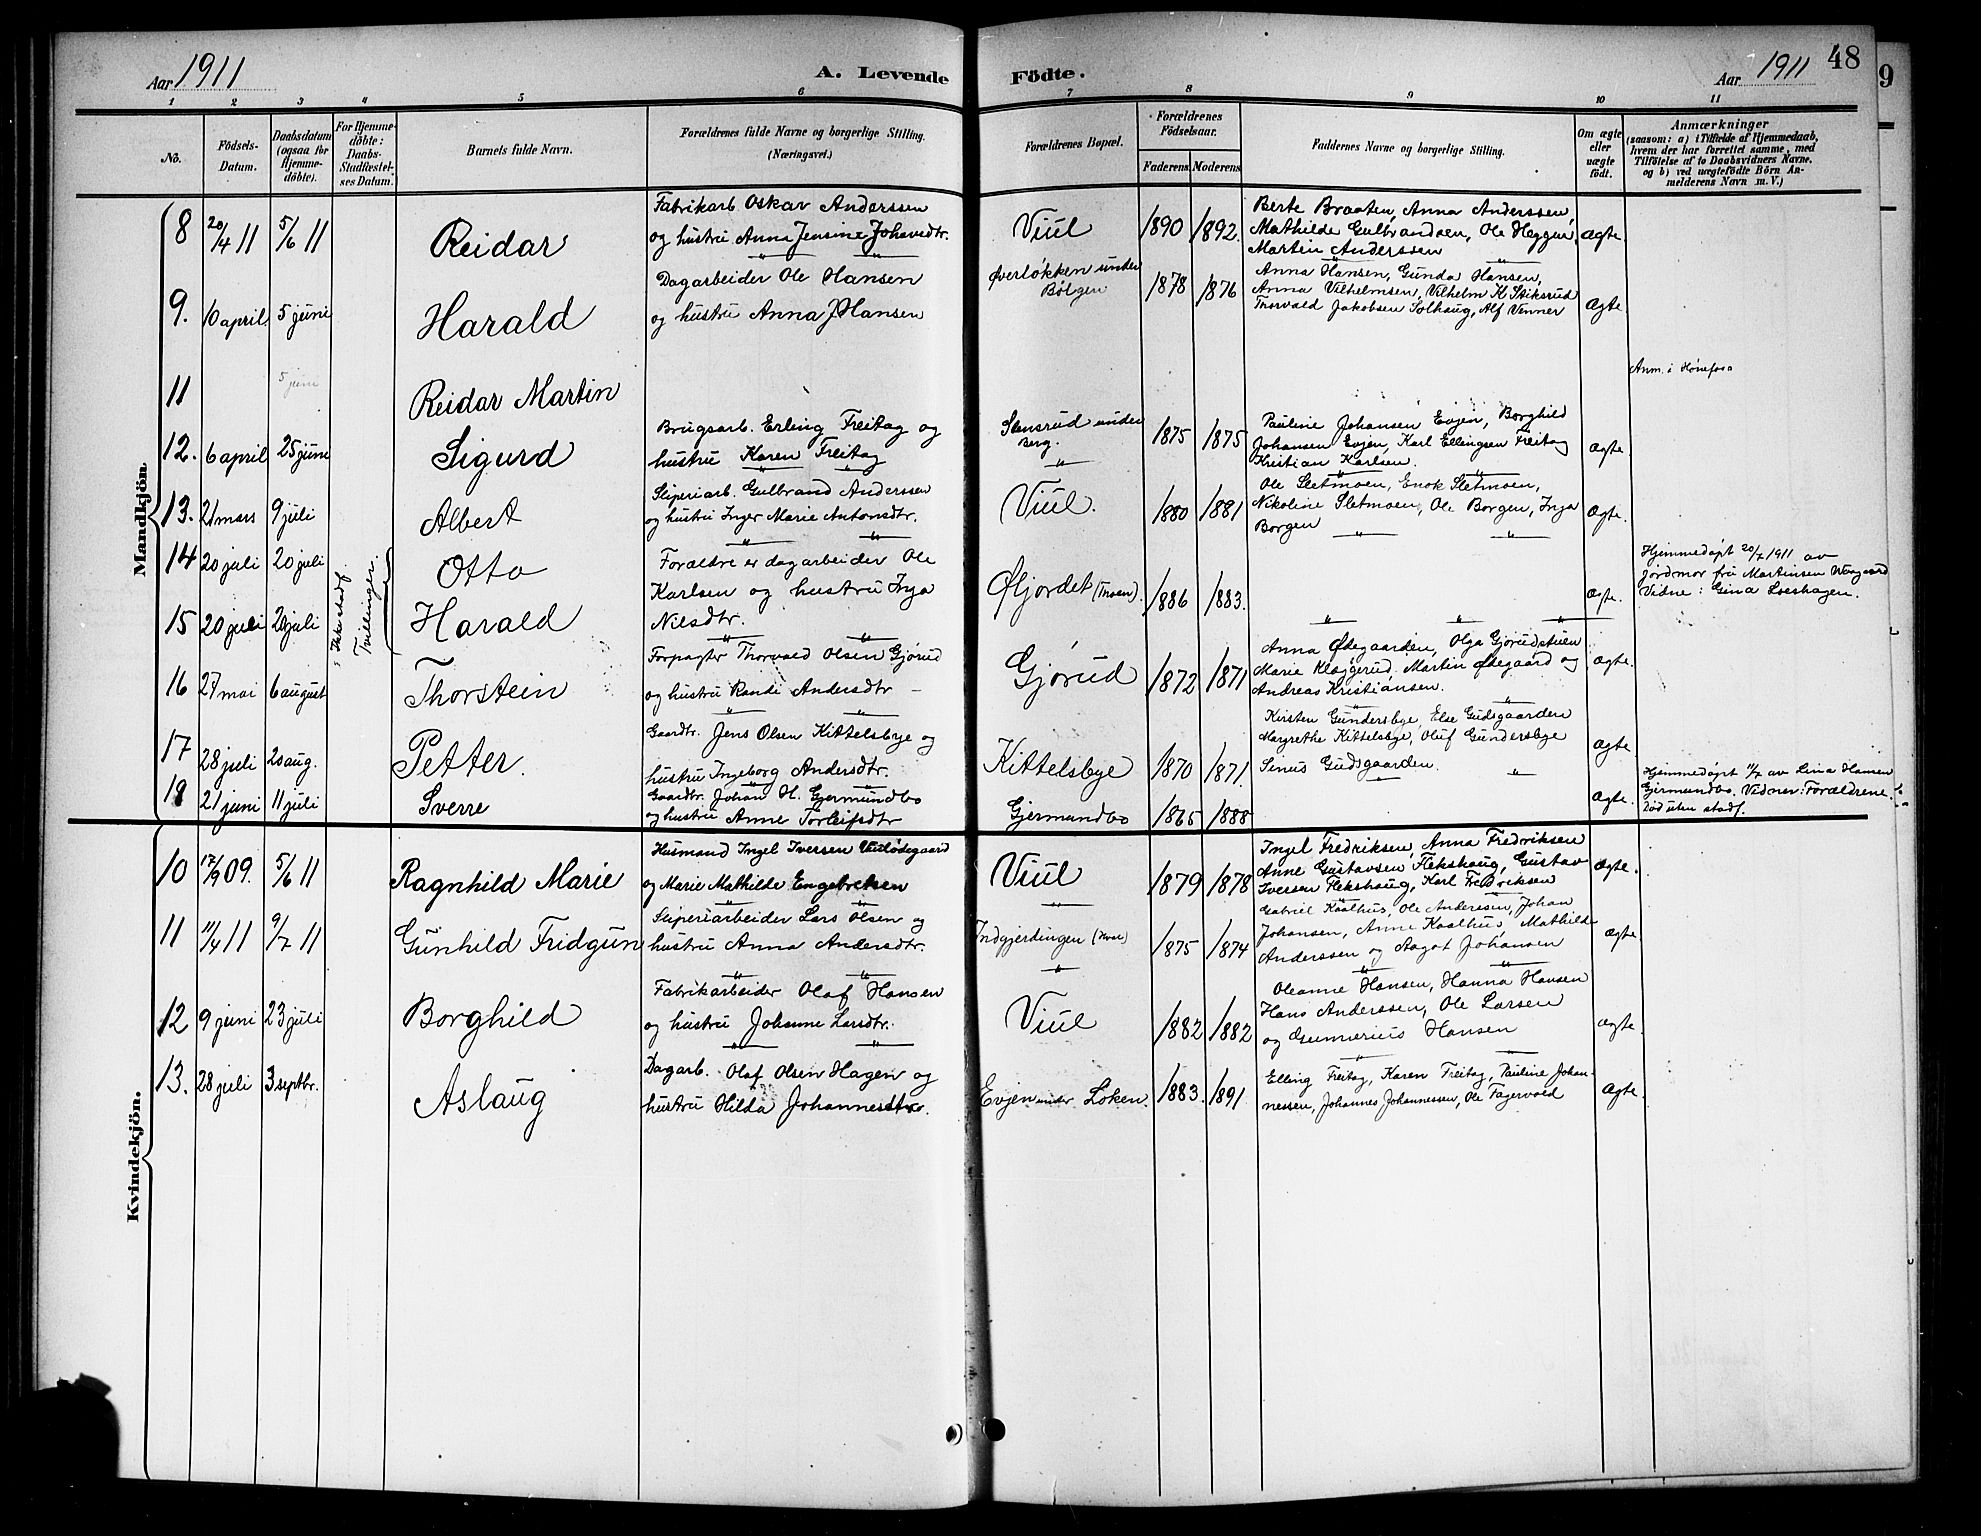 Aar 1911
A. Levende
Födte.
Aar 1911
48
9
1 2 3 4 5 6 7 8 9 10 11
No.
Födsels-
Datum.
Daabsdatum
(ogsaa for
Hjemme-
döbte).
For Hjemme-
döbte:
Daabs-
Stadfæstel-
ses Datum.
Barnets fulde Navn.
Forældrenes fulde Navne og borgerlige Stilling.
(Næringsvei.)
Forældrenes Bopæl.
Forældrenes
Födselsaar.
Faderens. Moderens.
Faddernes Navne og borgerlige Stilling.
Om ægte
eller
uægte
födt.
Anmærkninger
(saasom: a) i Tilfælde af Hjemmedaab,
hvem der har forrettet samme, med
Tilföielse af to Daabsvidners Navne,
og b) ved uægtefödte Börn An-
melderens Navn m. V.)
Mandkjön.
8 20/4 11 5/6 11 Reidar
Fabrikarb Oskar Anderssen
og hustru Anna Jensine
Viul 1890 1892.
Berte Braaten, Anna Anderssen,
Mathilde Gulbrandsen, Ole Heggen,
Martin Anderssen
Ægte.
9. 10 april 5 juni Harald
Dagarbeider Ole Hansen
og hustru Anna J Hansen
Øverløkken under
Bølgen
1878 1876
Anna Hansen, Gunda Hansen,
Anna Vilhelmsen, Vilhelm K Stiksrud
Thorvald Jakobsen Solhaug, Alf Venner
Ægte.
11 5 juni Reidar Martin
Anm. i Hønefoss
12. 6 april 25 juni Sigurd
Brugsarb. Erling Freitag og
hustru Karen Freitag
Stensrud under
Berg.
1875 1875
Pauline Johansen Evjen, Borghild
Johansen Evjen, Karl Ellingsen Freitag
Kristian Karlsen.
Ægte.
13. 21 mars 9 juli Albert
Sliperiarb. Gulbrand Anderssen
og hustru Inger Marie Antonsdtr.
Viul. 1880 1881
Ole Sletmoen, Enok Sletmoen,
Nikoline Sletmoen, Ole Borgen, Inga
Borgen
Ægte.
14 20 juli 20 juli Otto
15 20 juli 20 juli Harald
Ikke stadf.
Tvillinger.
Forældre er dagarbeider Ole
Karlsen og hustru Inga
Nilsdtr.
Øfjordet (Moen). 1886 1883.
Ægte.
Hjemmedøpt 20/7 1911 av
jordmor fru Martinsen
Vidne: Gina Loeshagen.
16 27 mai 6 august Thorstein
Forpagter Thorvald Olsen Gjørud
og hustru Randi Andersdtr
Gjørud 1872 1871
Anna Ødegaarden, Olga Gjørudstuen
Marie Klæggerud, Martin Ødegaard og
Andreas Kristiansen.
Ægte.
17 28 juli 20 aug. Petter.
Gaardbr. Jens Olsen Kittelsbye og
hustru Ingeborg Andersdtr.
Kittelsbye 1870 1871.
Kirsten Gundersbye, Else Gudsgaarden
Margrethe Kittelsbye, Oluf Gundersbye
Sinus Gudsgaarden.
Ægte
18 21 juni 11 juli Sverre
Gaardbr. Johan H. Gjermundbo
og hustru Anne Torleifsdtr
Gjermundbo 1865 1888
Ægte.
Hjemmedøpt 11/7 av Lina Hansen
Gjermundbo. Vidner: Forældrene.
Død uten stadf.
Kvindekjön.
10 17/9 09. 5/6 11 Ragnhild Marie
Husmand Ingel Iversen Viulødegaard
og Marie Mathilde Engebretsen
Viul 1879 1878
Ingel Fredriksen, Anna Fredriksen
Anne Gustavsen Flekshaug, Gustav
Iversen Flekshaug, Karl Fredriksen
Ægte.
11 11/4 11 9/7 11 Gunhild Fridgun
Sliperiarbeider Lars Olsen og
hustru Anna Andersdtr.
Indgjerdingen (Hval) 1875 1874
Gabriel Kaalhus, Ole Anderssen, Johan
Johansen, Anne Kaalhus, Mathilde
Anderssen og Aagot Johansen
Ægte.
12 9 juni 23 juli Borghild
Fabrikarbeider Olaf Hansen
og hustru Johanne Larsdtr.
Viul 1882 1882
Oleanne Hansen, Hanna Hansen
Hans Anderssen, Ole Larsen
og Gunnerius Hansen
Ægte.
13. 28 juli 3 septbr. Aslaug
Dagarb. Olaf Olsen Hagen og
hustru Hilda Johannesdtr.
Evjen under Loken. 1883. 1891
Elling Freitag, Karen Freitag, Pauline Johan-
nessen, Johannes Johannessen, Ole Fagervold
Ægte.